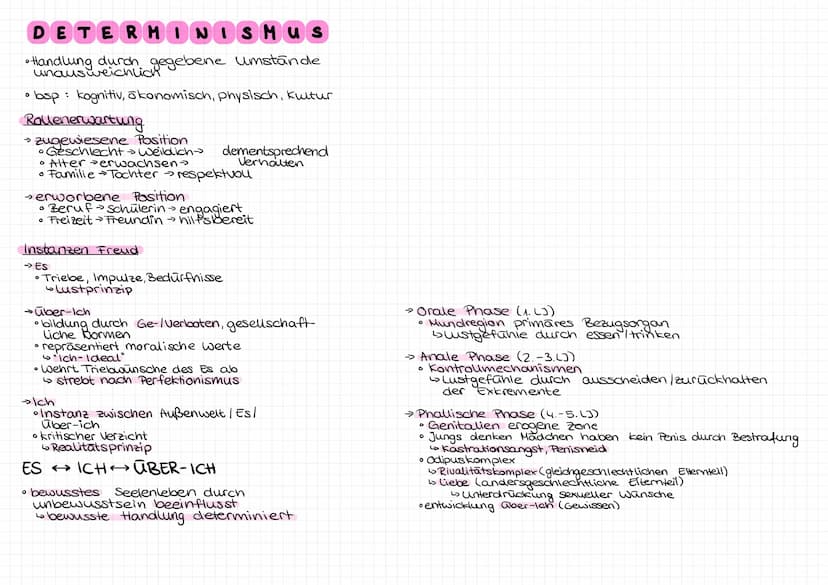 DETERMINISMUS
• Handlung durch gegebene Umstände
unausweichlich
• bsp : kognitiv, ökonomisch, physisch, Kultur
Rollenerwartung
→ zugewiesene Position
• Geschlecht → weiblich → dementsprechend
• Alter → erwachsen → Verhalten
• Familie → Tochter → respektvoll
→ erworbene Position
• Beruf → Schülerin → engagiert
• Freizeit → Freundin → hilfsbereit
Instanzen Freud
→ Es
• Triebe, Impulze, Bedürfnisse
↳ Lustprinzip
→ Über-Ich
• bildung durch Ge-/Verboten, gesellschaft-
liche Normen
• repräsentiert moralische Werte
↳ "ich-Ideal"
• Wehrt Triebwünsche des Es ab
↳ strebt nach Perfektionismus
→ Ich
• Instanz zwischen Außenwelt / Es /
Über-ich
• kritischer Verzicht
↳ Realitätsprinzip
ES ↔ ICH ↔ ÜBER-ICH
• bewusstes Seelenleben durch
unbewusstsein beeinflusst
↳ bewusste Handlung determiniert
→ Orale Phase (1. LJ)
• Mundregion primäres Bezugsorgan
↳ Lustgefühle durch essen / trinken
→ Anale Phase (2.-3. LJ)
• Kontrollmechanismen
↳ Lustgefühle durch ausscheiden / zurückhalten
der Exkremente
→ Phallische Phase (4.-5. LJ)
• Genitalien erogene Zone
• Jungs denken Mädchen haben kein Penis durch Bestrafung
↳ Kastrationsangst, Penisneid
• Ödipuskomplex
↳ Rivalitätskomplex (gleichgeschlechtlichen Elternteil)
↳ Liebe (andersgeschlechtliche Elternteil)
↳ Unterdrückung sexueller Wünsche
• entwicklung Über-Ich (Gewissen)